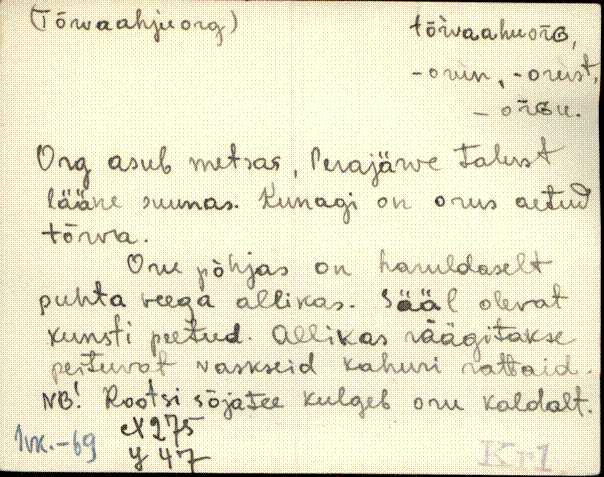 (Tõrvaahjuorg)
tõrvaahuorG,
-orun, -orust,
- orGu.
Org asub metsas, Perajärve talust
lääne suunas. Kunagi on orus aetud
tõrva.
Oru põhjas on haruldaselt
puhta veega allikas. Sääl olevat
kunsti peetud. Allikas räägitakse
peituvat vaskseid kahuri rattaid.
NB! Rootsi sõjatee kulgeb oru kaldalt.
X 275
y 47
Kr1.